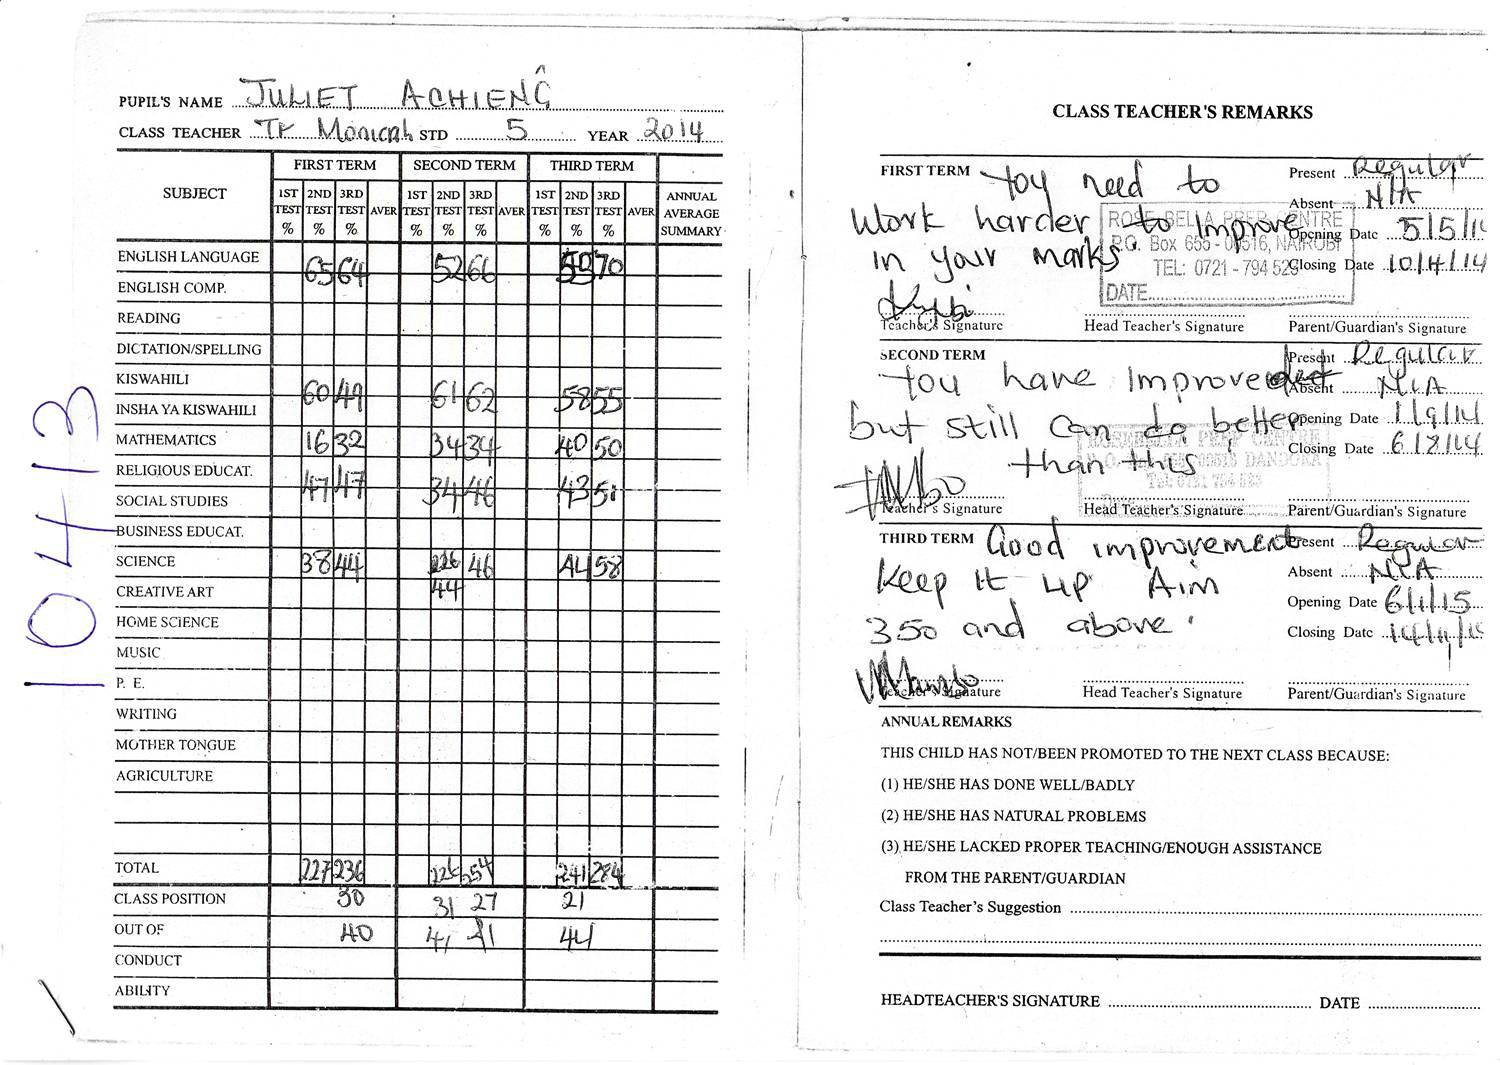 PUPIL'S NAME JULIET ACHIENG
CLASS TEACHER Tr Monicah STD 5 YEAR 2014
SUBJECT FIRST TERM SECOND TERM THIRD TERM ANNUAL AVERAGE SUMMARY
1ST TEST % 2ND TEST % 3RD TEST % AVER 1ST TEST % 2ND TEST % 3RD TEST % AVER 1ST TEST % 2ND TEST % 3RD TEST % AVER
ENGLISH LANGUAGE 65 64 52 66 59 70
ENGLISH COMP.
READING
DICTATION/SPELLING
KISWAHILI 60 49 61 62 58 55
INSHA YA KISWAHILI
MATHEMATICS 16 32 34 34 40 50
RELIGIOUS EDUCAT. 47 47 34 46 43 51
SOCIAL STUDIES
BUSINESS EDUCAT.
SCIENCE 38 44 46 44 58
CREATIVE ART 44
HOME SCIENCE
MUSIC
P. E.
WRITING
MOTHER TONGUE
AGRICULTURE
TOTAL 227 236 226 254 241 284
CLASS POSITION 30 31 27 21
OUT OF 40 41 41 44
CONDUCT
ABILITY
10413
CLASS TEACHER'S REMARKS
FIRST TERM You need to
Work harder to improve
in your marks
Present Regular
Absent N/A
Opening Date 5/5/14
Closing Date 10/4/14
ROSE BELLA PREP CENTRE
P.O. Box 655 - 00516, NAIROBI
TEL: 0721 - 794 529
DATE
Teacher's Signature Head Teacher's Signature Parent/Guardian's Signature
SECOND TERM
You have improved
but still can do better
than this
Present Regular
Absent N/A
Opening Date 1/9/14
Closing Date 6/8/14
Teacher's Signature Head Teacher's Signature Parent/Guardian's Signature
THIRD TERM Good improvement
Keep it up Aim
350 and above.
Present Regular
Absent N/A
Opening Date 6/1/15
Closing Date
Teacher's Signature Head Teacher's Signature Parent/Guardian's Signature
ANNUAL REMARKS
THIS CHILD HAS NOT/BEEN PROMOTED TO THE NEXT CLASS BECAUSE:
(1) HE/SHE HAS DONE WELL/BADLY
(2) HE/SHE HAS NATURAL PROBLEMS
(3) HE/SHE LACKED PROPER TEACHING/ENOUGH ASSISTANCE
FROM THE PARENT/GUARDIAN
Class Teacher's Suggestion
HEADTEACHER'S SIGNATURE DATE